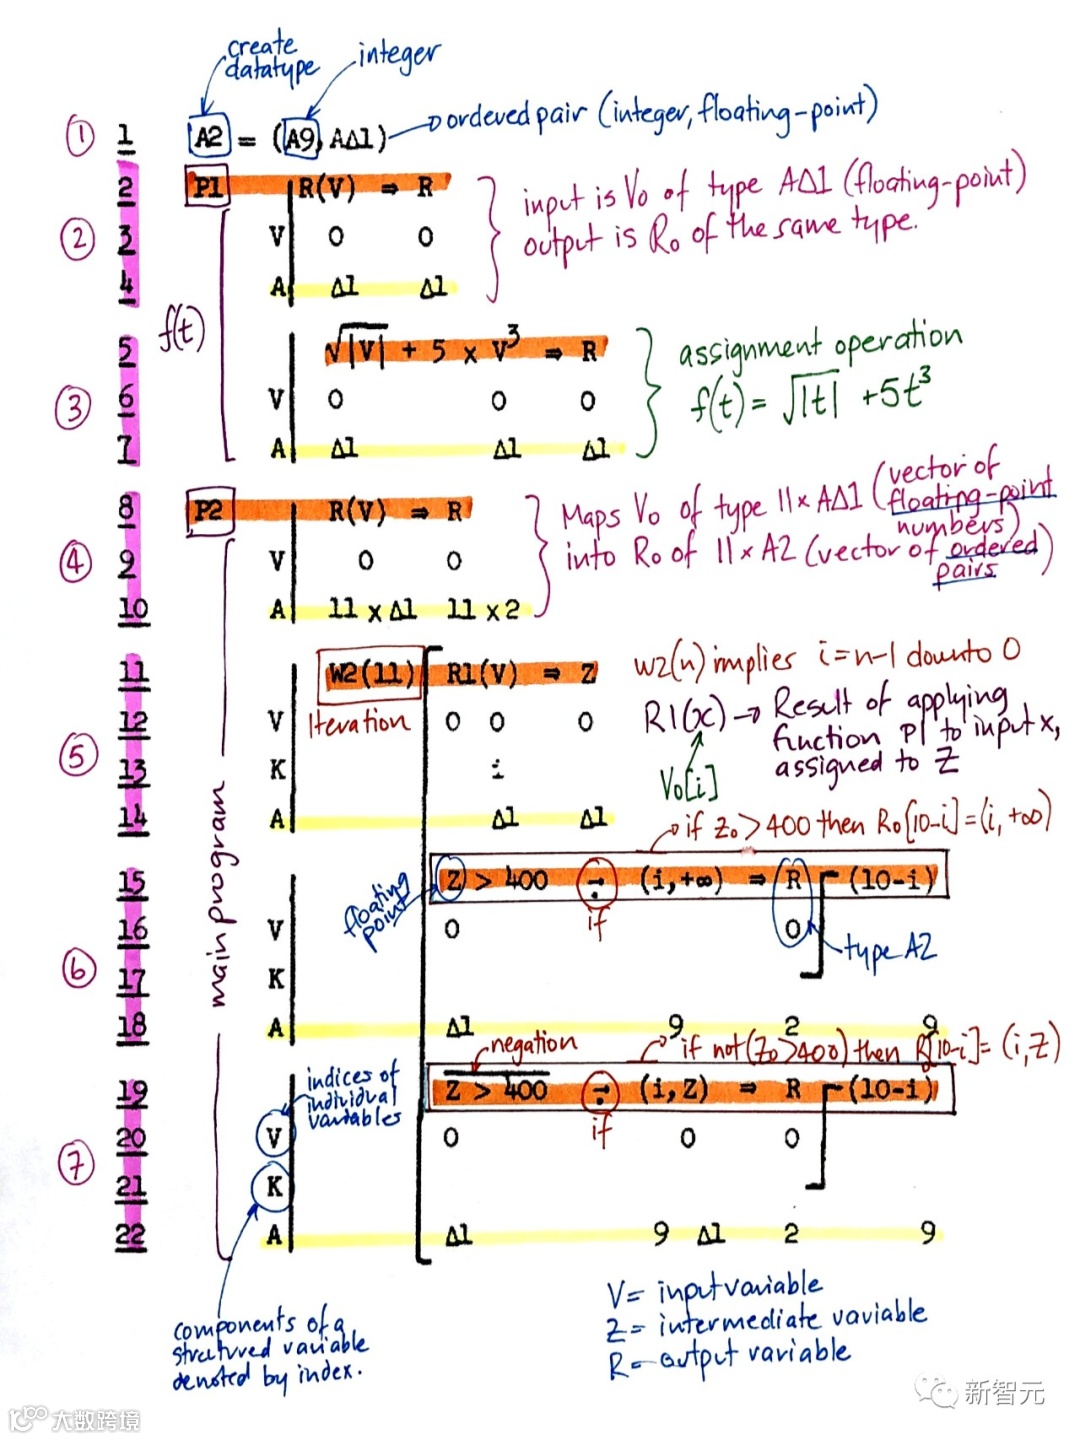 create
datatype
integer
① 1 A2 = (A9, AΔ1) ordered pair (integer, floating-point)
2 P1 R(V) ⇒ R
input is V0 of type AΔ1 (floating-point)
② 3 V 0 0
output is R0 of the same type.
4 A Δ1 Δ1
f(t)
5 √|V| + 5 × V³ ⇒ R
assignment operation
③ 6 V 0 0 0
f(t) = √|t| + 5t³
7 A Δ1 Δ1 Δ1
8 P2 R(V) ⇒ R
Maps V0 of type 11×AΔ1 (vector of
floating-point
numbers)
④ 9 V 0 0
into R0 of 11×A2 (vector of ordered
pairs)
10 A 11 × Δ1 11 × 2
11 W2(11) R1(V) ⇒ Z
w2(n) implies i=n-1 downto 0
12 V Iteration 0 0 0
R1(x) → Result of applying
function P1 to input x,
assigned to Z
⑤ 13 K i
V0[i]
14 A Δ1 Δ1
main program
if Z0 > 400 then R0[10-i] = (i, +∞)
15 Z > 400 → (i,+∞) ⇒ R (10-i)
floating
point
if
16 V 0 0
type A2
⑥ 17 K
18 A Δ1 9 2 9
negation
if not (Z0 > 400) then R[10-i] = (i, Z)
19 Z > 400 → (i,Z) ⇒ R (10-i)
indices of
individual
variables
if
20 V 0 0 0
⑦ 21 K
22 A Δ1 9 Δ1 2 9
components of a
structured variable
denoted by index.
V = input variable
Z = intermediate variable
R = output variable
新智元
大数跨境